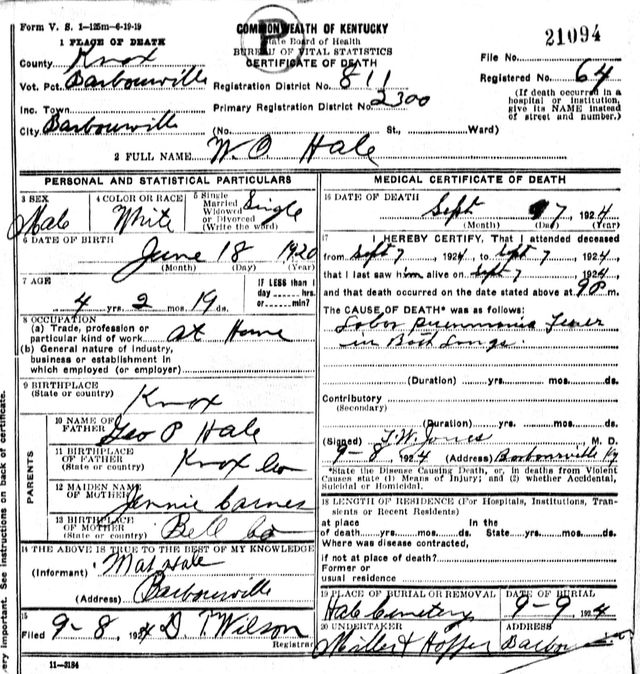 Form V. S. 1-125m-6-19-19
COMMONWEALTH OF KENTUCKY
State Board of Health
BUREAU OF VITAL STATISTICS
CERTIFICATE OF DEATH
P
21094
1 PLACE OF DEATH
County Knox
Vot. Pct. Barbourville
Inc. Town
City Barbourville
Registration District No. 811
Primary Registration District No. 2300
File No.
Registered No. 64
(If death occurred in a
hospital or institution,
give its NAME instead
of street and number.)
(No. St., Ward)
2 FULL NAME W. O. Hale
PERSONAL AND STATISTICAL PARTICULARS
3 SEX
Male
4 COLOR OR RACE
White
5 Single
Married
Widowed
or Divorced
(Write the word)
Single
6 DATE OF BIRTH
June 18 1920
(Month) (Day) (Year)
7 AGE
4 yrs. 2 mos. 19 ds.
IF LESS than 1
day hrs.
or min?
8 OCCUPATION
(a) Trade, profession or
particular kind of work at Home
(b) General nature of industry,
business or establishment in
which employed (or employer)
9 BIRTHPLACE
(State or country)
Knox
PARENTS
10 NAME OF
FATHER
Geo P Hale
11 BIRTHPLACE
OF FATHER
(State or country)
Knox Co
12 MAIDEN NAME
OF MOTHER
Jennie Carnes
13 BIRTHPLACE
OF MOTHER
(State or country)
Bell Co
14 THE ABOVE IS TRUE TO THE BEST OF MY KNOWLEDGE
(Informant) Mat Hale
(Address) Barbourville
15
Filed 9-8, 1924 D. T. Wilson
Registrar
11-3184
MEDICAL CERTIFICATE OF DEATH
16 DATE OF DEATH
Sept 7, 1924
(Month) (Day) (Year)
17 I HEREBY CERTIFY, That I attended deceased
from Sept 7, 1924, to Sept 7, 1924,
that I last saw him alive on Sept 7, 1924,
and that death occurred on the date stated above at 9P m.
The CAUSE OF DEATH* was as follows:
Lobar pneumonia Fever
in Both Lungs.
(Duration) yrs. mos. ds.
Contributory
(Secondary)
(Duration) yrs. mos. ds.
(Signed) T. W. Jones M. D.
9-8 1924 (Address) Barbourville Ky
*State the Disease Causing Death, or, in deaths from Violent
Causes state (1) Means of Injury; and (2) whether Accidental,
Suicidal or Homicidal.
18 LENGTH OF RESIDENCE (For Hospitals, Institutions, Tran-
sients or Recent Residents)
at place In the
of death yrs. mos. ds. State yrs. mos. ds.
Where was disease contracted,
if not at place of death?
Former or
usual residence
19 PLACE OF BURIAL OR REMOVAL
Hale Cemetery
DATE OF BURIAL
9-9 1924
20 UNDERTAKER
Miller & Hopper
ADDRESS
Barbour
very important. See instructions on back of certificate.